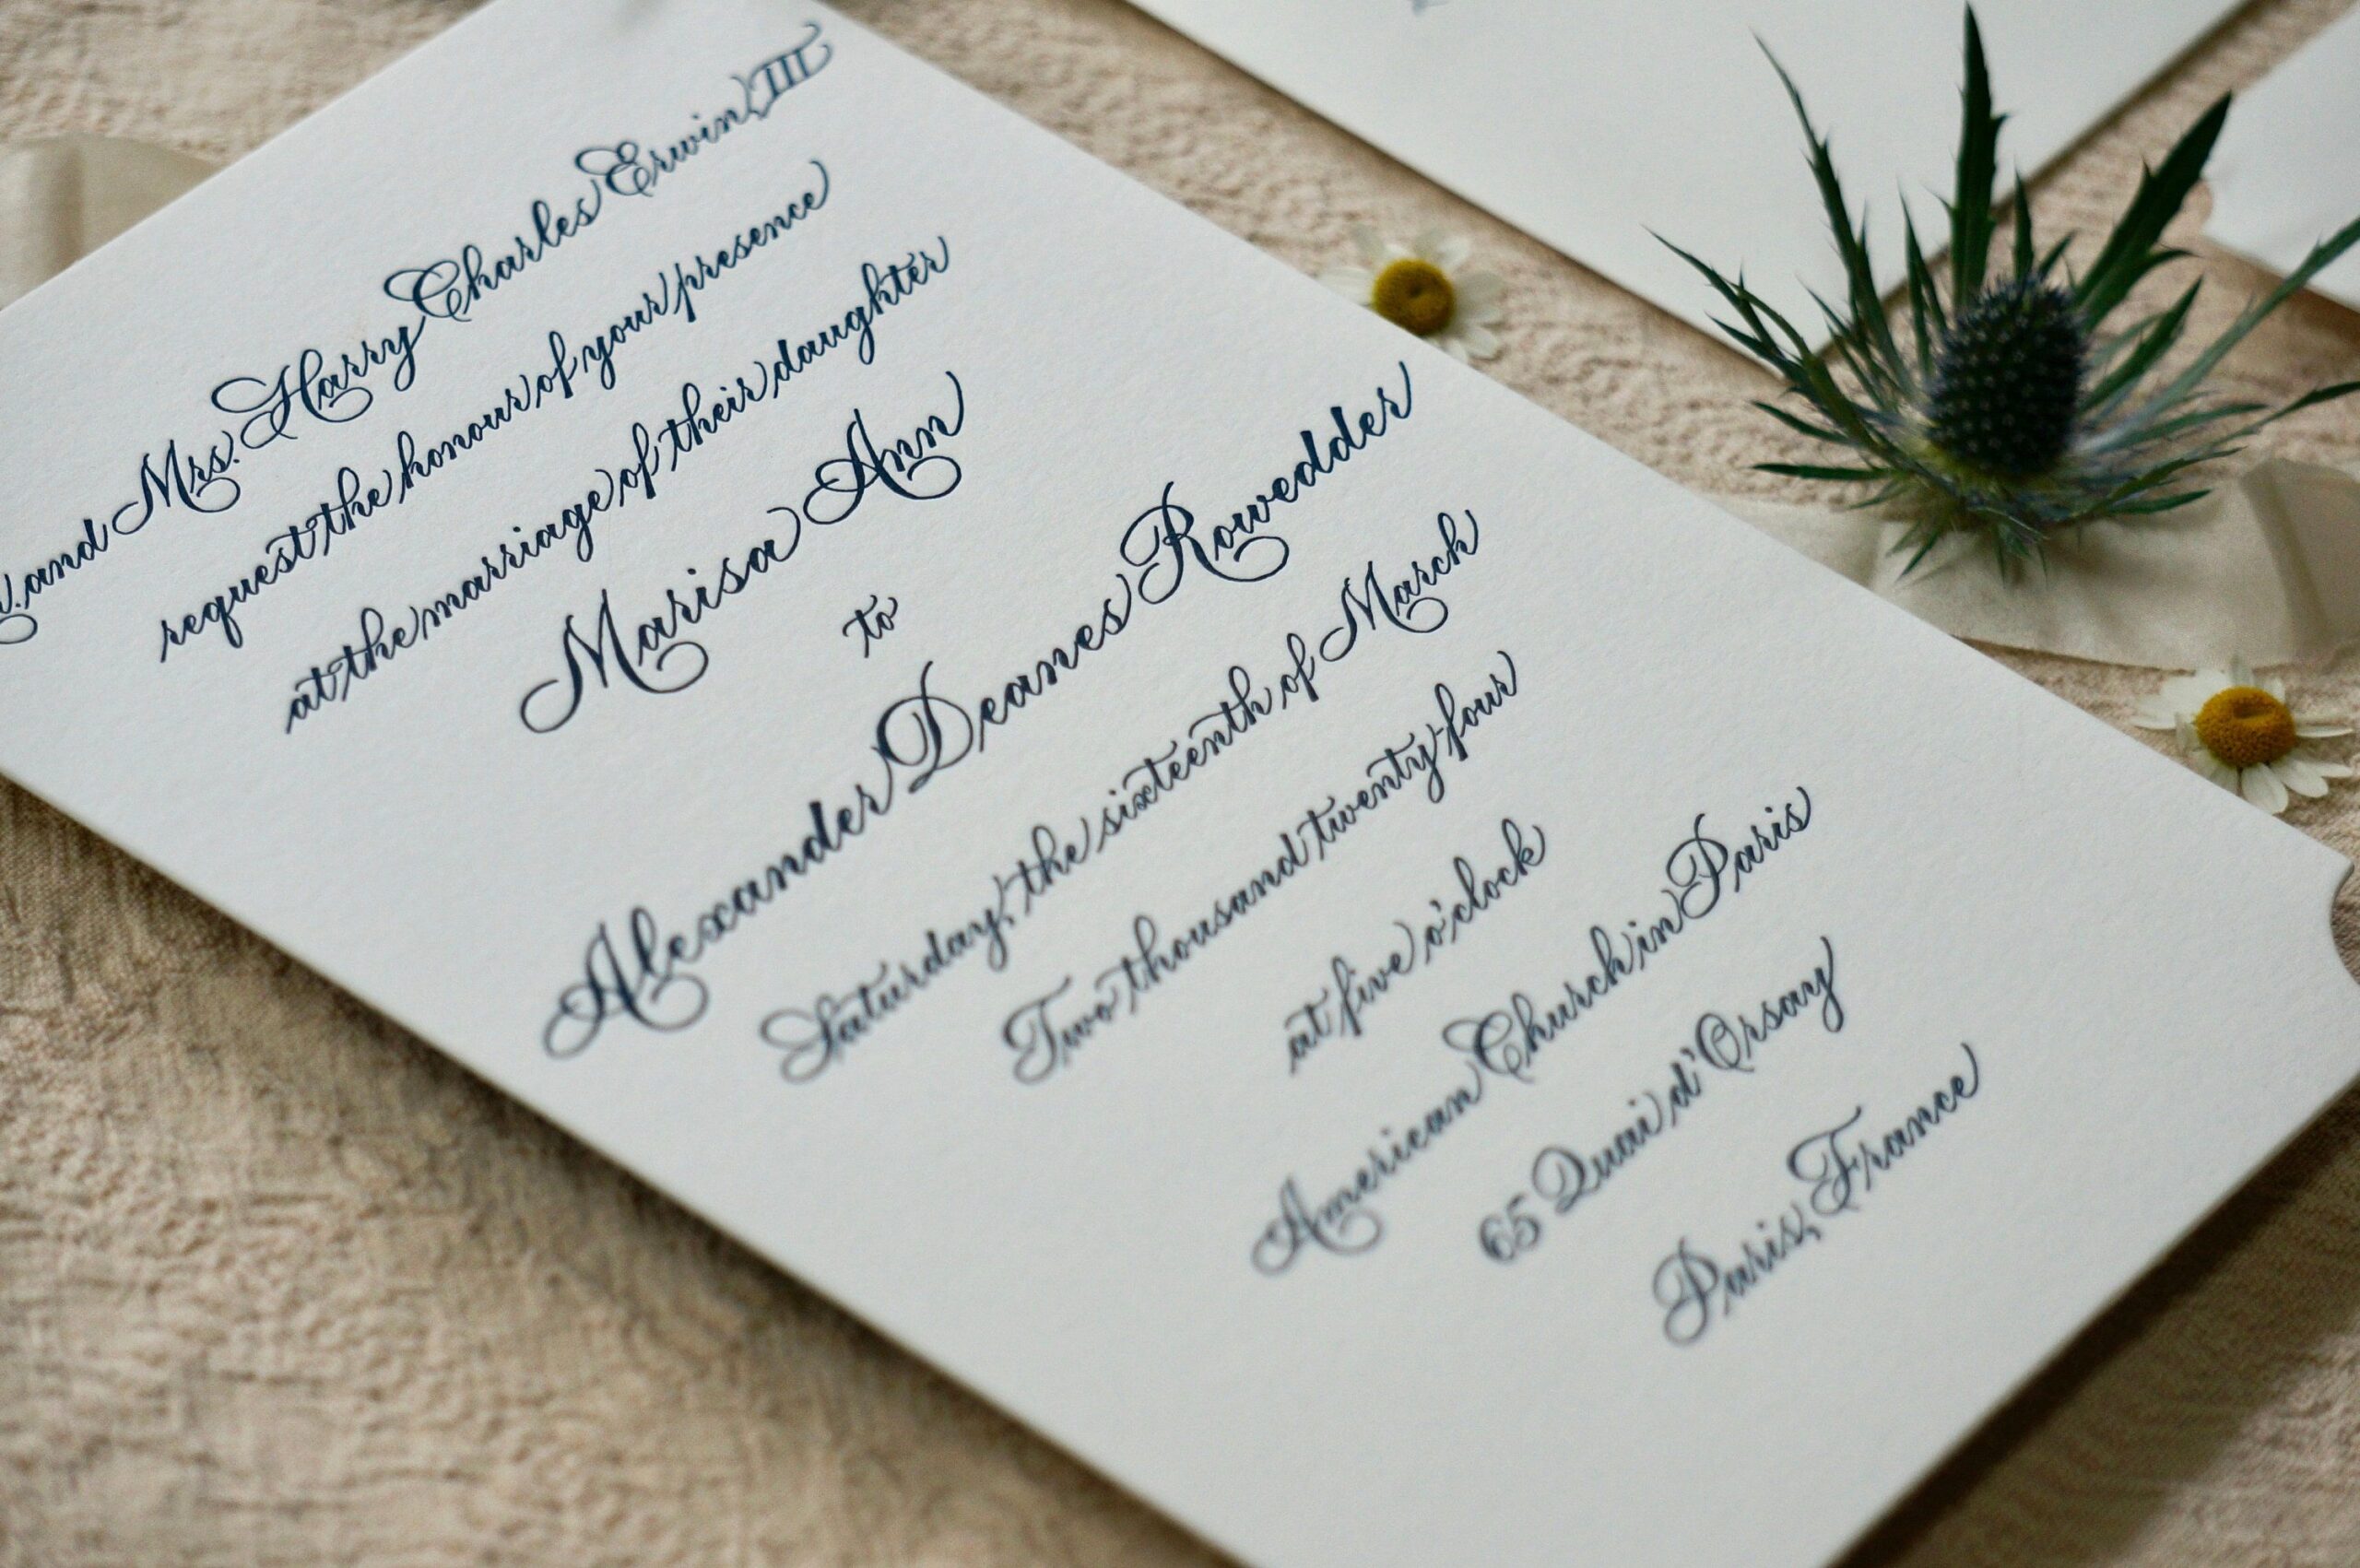 and Mrs. Harry Charles Erwin, III
request the honour of your presence
at the marriage of their daughter
Marisa Ann
to
Alexander Deanes Rowedder
Saturday, the sixteenth of March
Two thousand twenty-four
at five o'clock
American Church in Paris
65 Quai d'Orsay
Paris, France